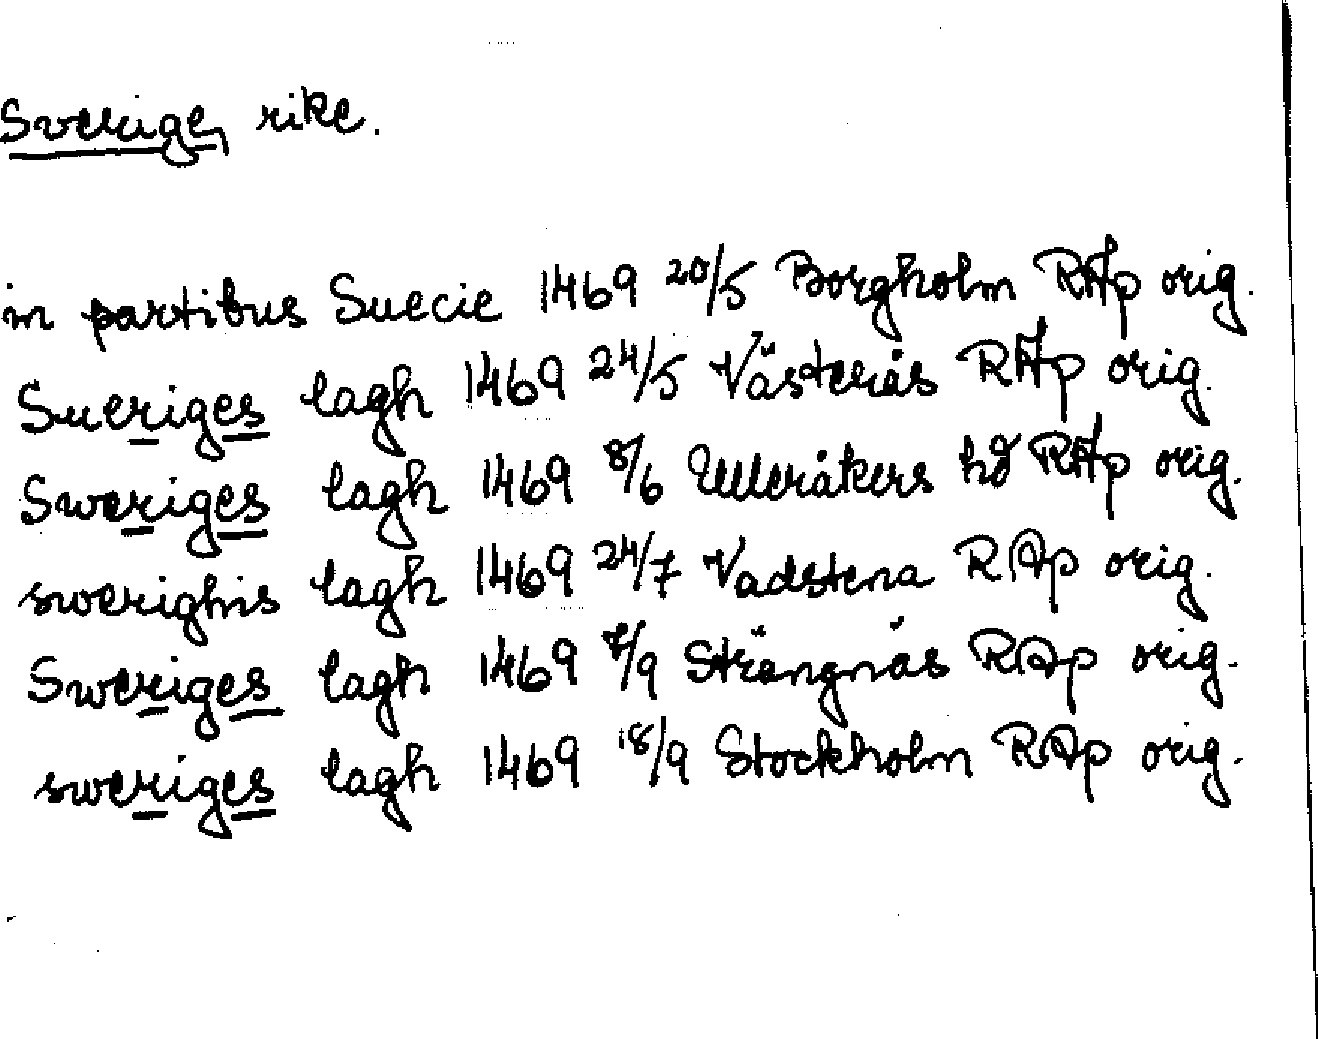 Sverige, rike.
in partibus Suecie 1469 20/5 Borgholm RAp orig.
Sueriges lagh 1469 24/5 Västerås RAp orig.
Sweriges lagh 1469 8/6 Ulleråkers hd RAp orig.
swerighis lagh 1469 24/7 Vadstena RAp orig.
Sweriges lagh 1469 7/9 Strängnäs RAp orig.
sweriges lagh 1469 18/9 Stockholm RAp orig.